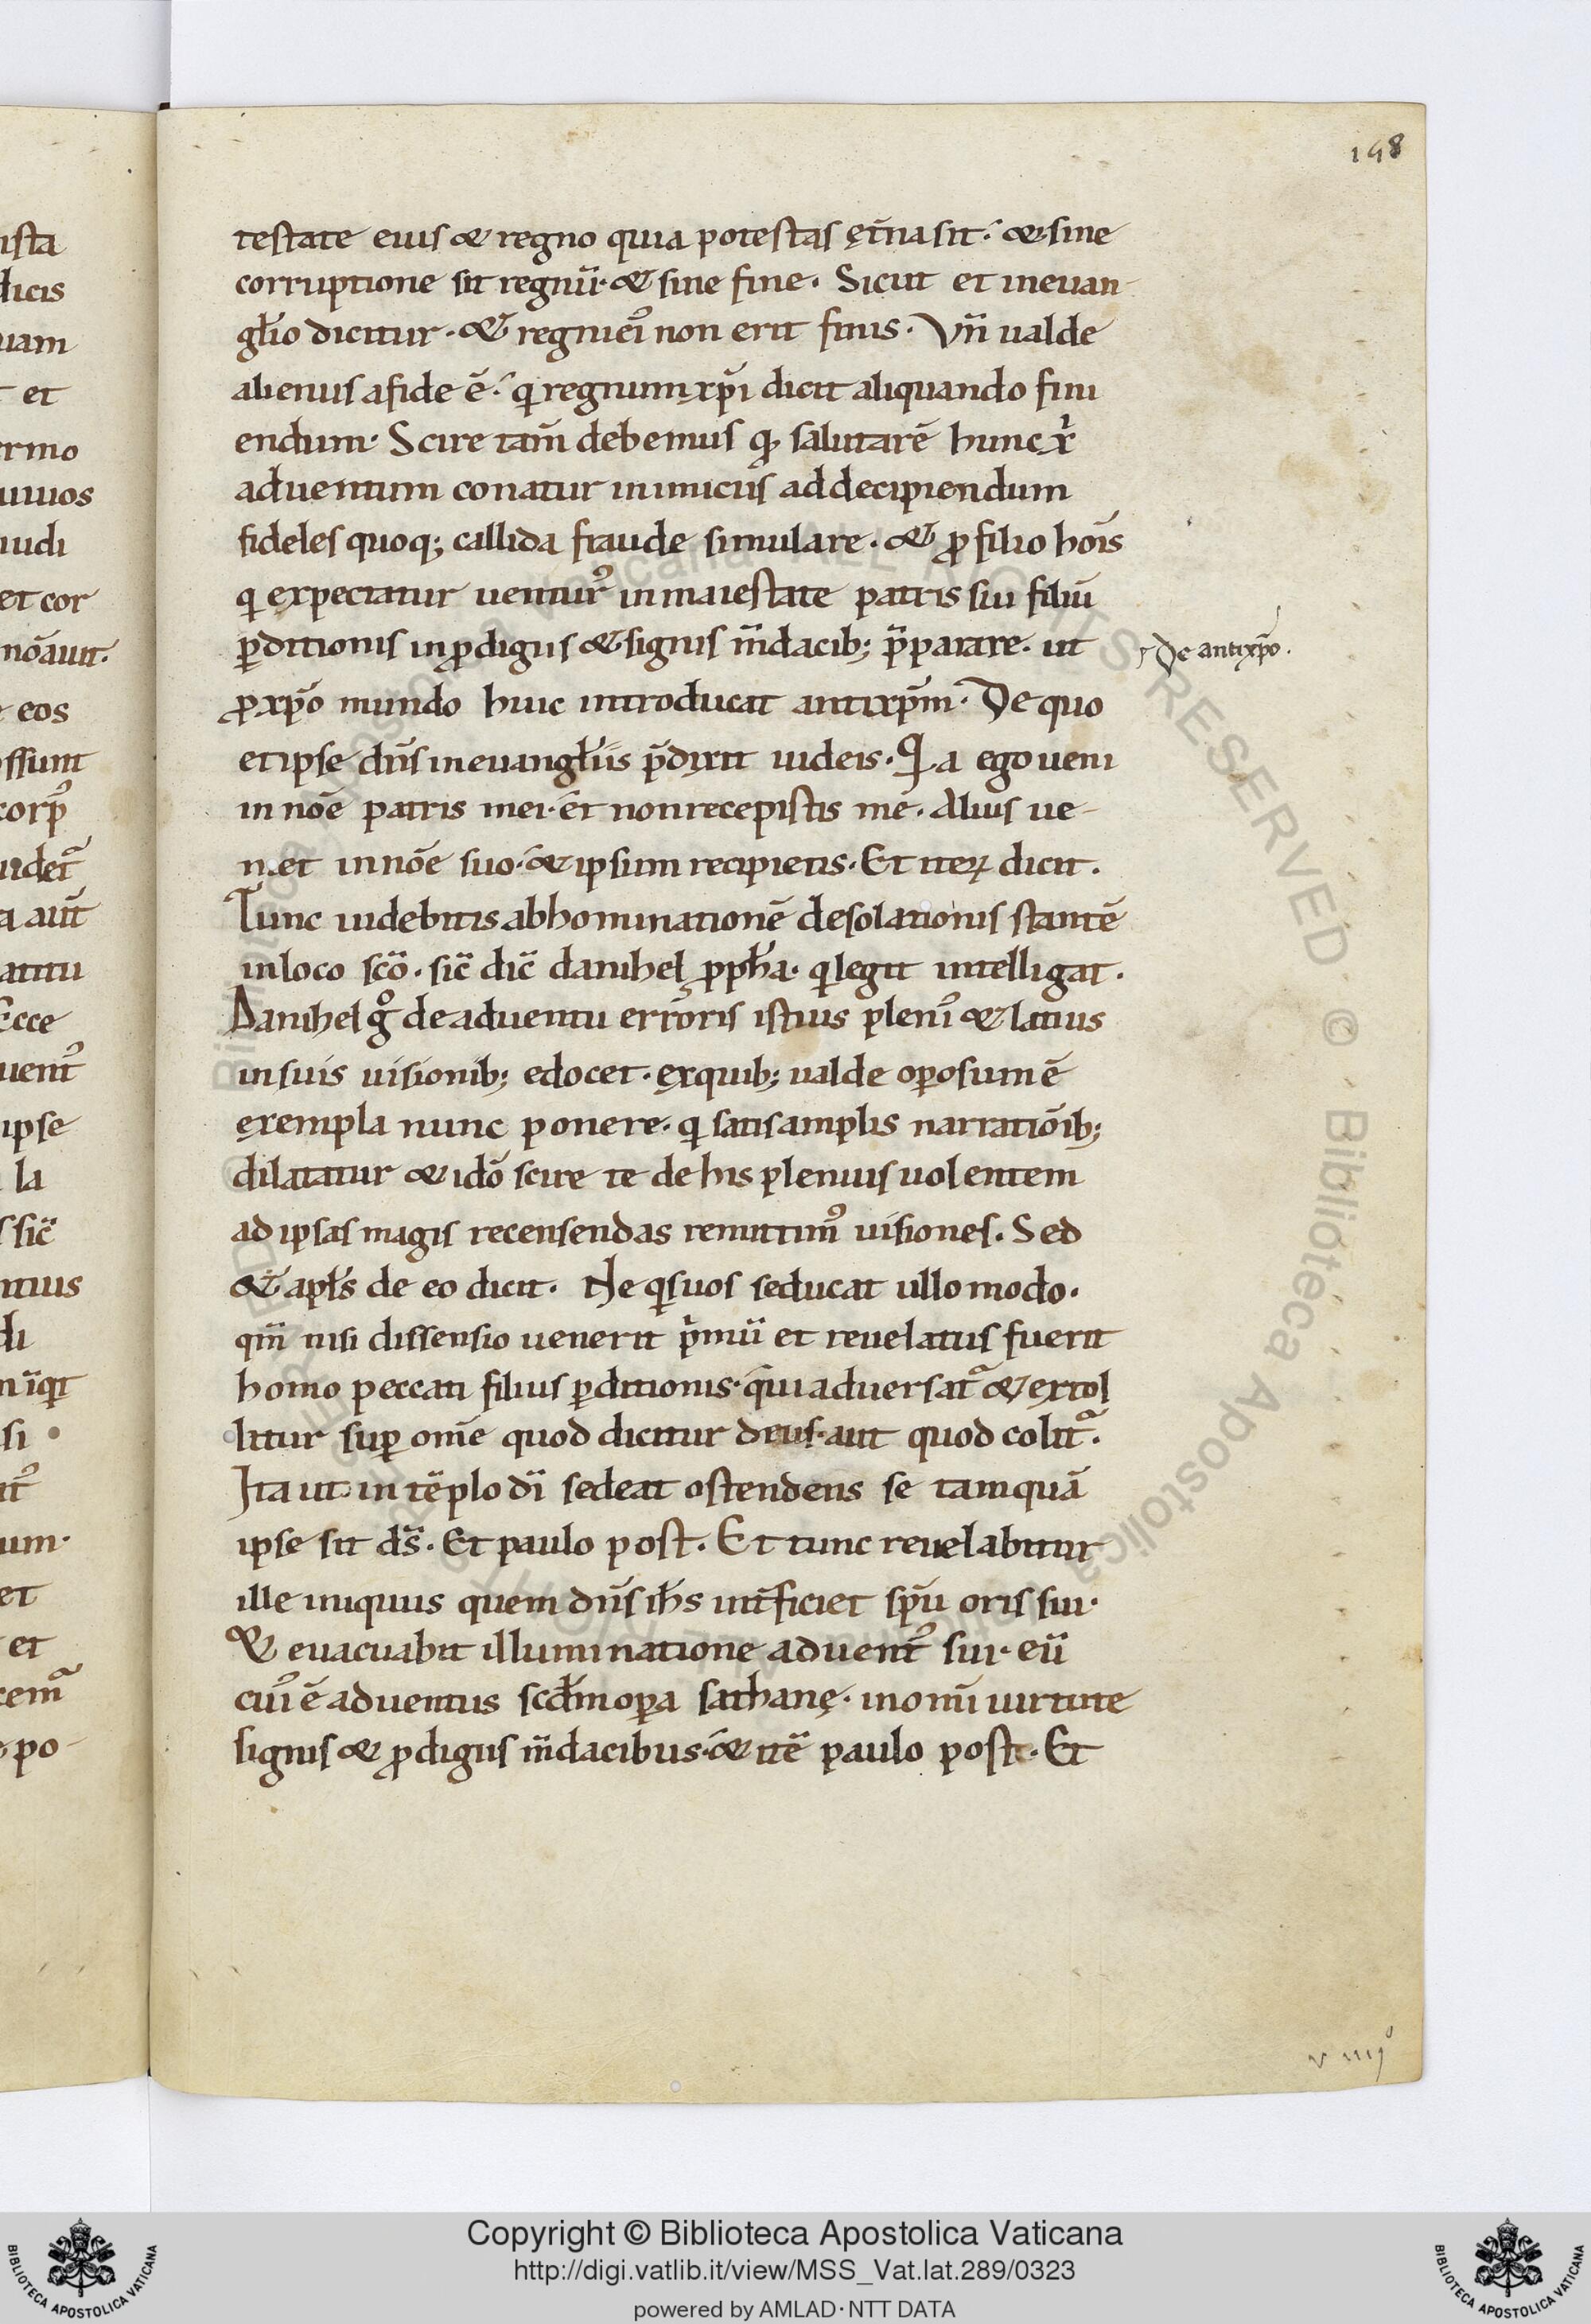 148
testate eius & regno quia potestas ęt̄na sit. & sine
corruptione sit regnū. & sine fine. Sicut et in euan-
gł̄io dicitur. & regni ei᾽ non erit finis. Vn̄ ualde
alienus a fide ē. qͥ regnum xp̄i dicit aliquando fini
endum. Scire tam̄ debemus qđ salutarē hunc xͥ
aduentum conatur inimicus ad decipiendum
fideles quoq; callida fraude simulare. & ꝓ filio hoīs
qͥ expectatur uentur᾽ in maiestate patris sui filiū
ꝑditionis in ꝓdigiis & signis m̄dacib; p̄parare. ut
ꝓ xp̄o mundo huic introducat antixp̄m. De quo
et ipse dn̄s in euangł̄iis p̄dixit iudeis. Qͥa ego ueni
in noē patris mei. et non recepistis me. Alius ue-
niet in noē suo. & ipsum recipietis. Et iteꝝ dicit.
Tunc uidebitis abhominationē desolationis stantē
in loco sc̄o. sic̄ dic̄ danihel ꝓph̄a. qͥ legit intelligat.
Danihel gͦ de aduentu erroris istius pleni᾽ & latius
in suis uisionib; edocet. ex quib; ualde oꝑosum ē
exempla nunc ponere. qͥ satis amplis narratiōib;
dilatatur & idō scire te de his plenius uolentem
ad ipsas magis recensendas remittim᾽ uisiones. Sed
& apł̄s de eo dicit. Ne qͥs uos seducat ullo modo.
qm̄ nisi dissensio uenerit pͥmū et reuelatus fuerit
homo peccati filius ꝑditionis. qui aduersat᾽ & extol
litur suꝑ om̄e quod dicitur deus. aut quod colit᾽.
Ita ut in tēplo dī sedeat ostendens se tamquā
ipse sit ds̄. Et paulo post. Et tunc reuelabitur
ille iniquus quem dn̄s ih̄s int̄ficiet sp̄u oris sui.
& euacuabit illuminatione aduent᾽ sui. eū
cui᾽ ē aduentus scd̄m oꝑa sathanę. in om̄i uirtute
signis & ꝓdigiis m̄dacibus. & itē paulo post. Et
De antixp̄o.
ista
dicis
uam
et
rmo
uiuos
iudi
et cor
nōauit.
eos
ossunt
corp᾽
uidet᾽
a aut̄
atitu
Ecce
uent᾽
ipse
la
sic̄
ntius
di
si
um.
et
et
cem᾽
po-
v iiijᵒ
Copyright © Biblioteca Apostolica Vaticana
http://digi.vatlib.it/view/MSS_Vat.lat.289/0323
powered by AMLAD·NTT DATA
BIBLIOTECA APOSTOLICA VATICANA
BIBLIOTECA APOSTOLICA VATICANA